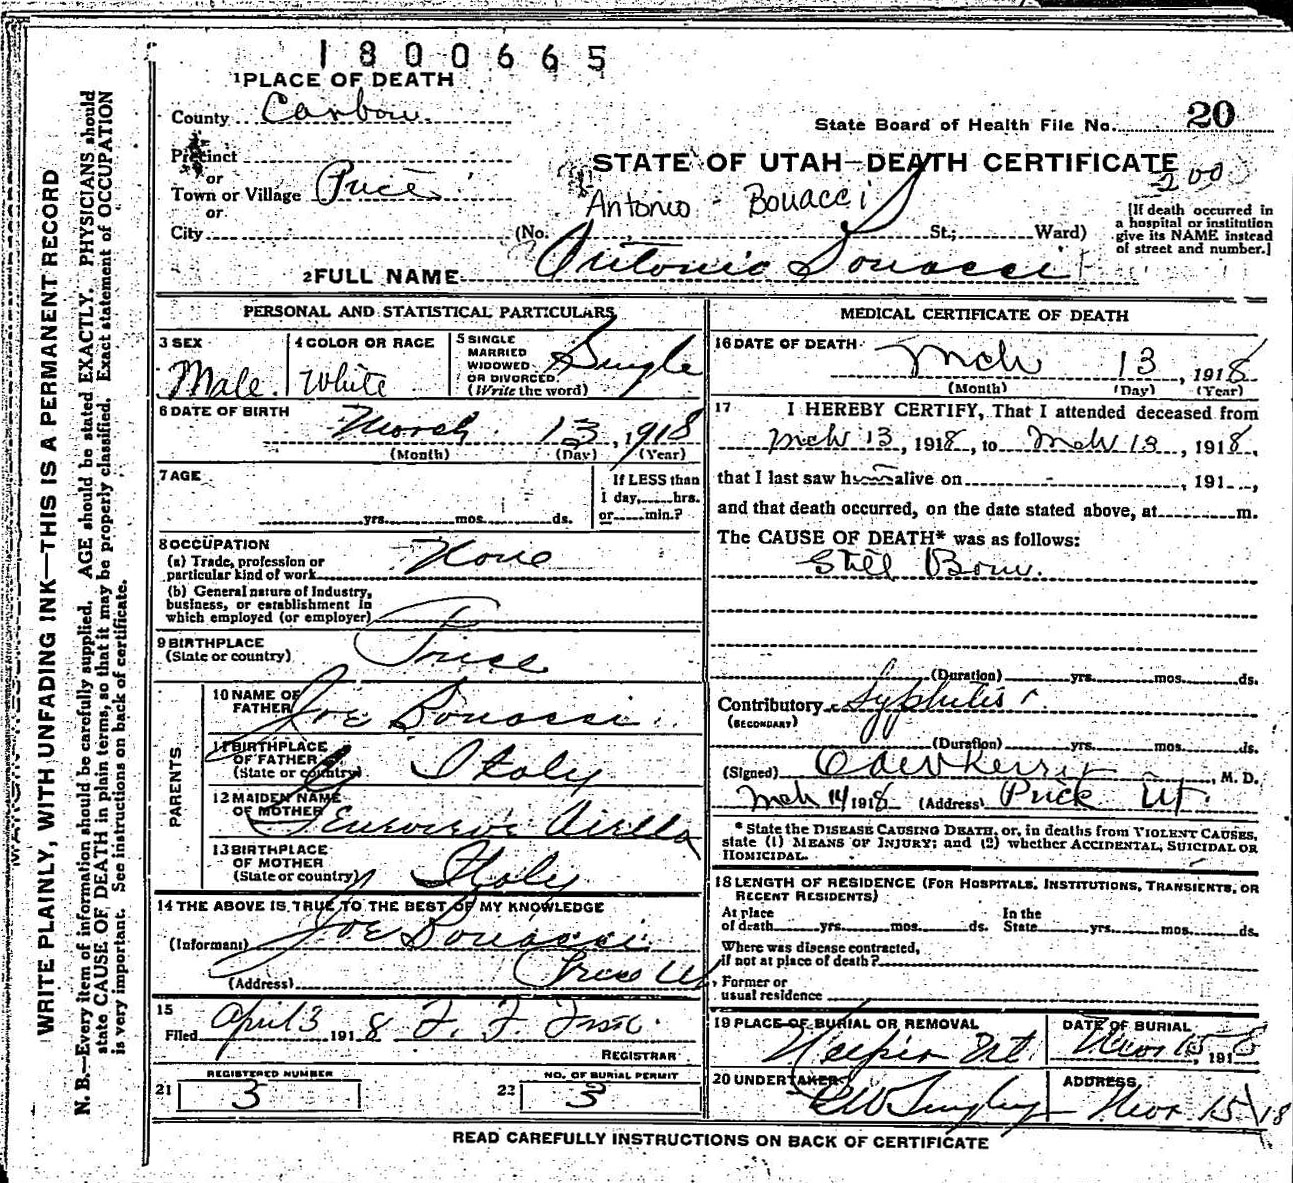 1800665
1 PLACE OF DEATH
County Carbon
State Board of Health File No. 20
Precinct
or
STATE OF UTAH—DEATH CERTIFICATE
200
Town or Village Price
Antonio Bonacci
or
City (No. St.; Ward)
[If death occurred in
a hospital or institution
give its NAME instead
of street and number.]
2 FULL NAME Antonio Bonacci
WRITE PLAINLY, WITH UNFADING INK—THIS IS A PERMANENT RECORD
N. B.—Every item of information should be carefully supplied. AGE should be stated EXACTLY. PHYSICIANS should
state CAUSE OF DEATH in plain terms, so that it may be properly classified. Exact statement of OCCUPATION
is very important. See instructions on back of certificate.
PERSONAL AND STATISTICAL PARTICULARS
3 SEX
Male
4 COLOR OR RACE
White
5 SINGLE
MARRIED
WIDOWED
OR DIVORCED.
(Write the word)
Single
6 DATE OF BIRTH
March 13, 1918
(Month) (Day) (Year)
7 AGE
yrs. mos. ds.
If LESS than
1 day, hrs.
or min.?
8 OCCUPATION
(a) Trade, profession or
particular kind of work None
(b) General nature of Industry,
business, or establishment in
which employed (or employer)
9 BIRTHPLACE
(State or country) Price
PARENTS
10 NAME OF
FATHER Joe Bonacci
11 BIRTHPLACE
OF FATHER
(State or country) Italy
12 MAIDEN NAME
OF MOTHER Genevieve Airella
13 BIRTHPLACE
OF MOTHER
(State or country) Italy
14 THE ABOVE IS TRUE TO THE BEST OF MY KNOWLEDGE
(Informant) Joe Bonacci
(Address) Price Ut
15
Filed April 3 1918
REGISTRAR
REGISTERED NUMBER
21 3
NO. OF BURIAL PERMIT
22 3
MEDICAL CERTIFICATE OF DEATH
16 DATE OF DEATH
Mch 13, 1918
(Month) (Day) (Year)
17 I HEREBY CERTIFY, That I attended deceased from
Mch 13, 1918, to Mch 13, 1918,
that I last saw h alive on , 191 ,
and that death occurred, on the date stated above, at m.
The CAUSE OF DEATH* was as follows:
Still Born.
(Duration) yrs. mos. ds.
Contributory Syphilis
(SECONDARY)
(Duration) yrs. mos. ds.
(Signed) , M. D.
Mch 14 1918 (Address) Price Ut.
* State the DISEASE CAUSING DEATH, or, in deaths from VIOLENT CAUSES,
state (1) MEANS OF INJURY; and (2) whether ACCIDENTAL, SUICIDAL OR
HOMICIDAL.
18 LENGTH OF RESIDENCE (FOR HOSPITALS, INSTITUTIONS, TRANSIENTS, OR
RECENT RESIDENTS)
At place
of death yrs. mos. ds.
In the
State yrs. mos. ds.
Where was disease contracted,
if not at place of death?
Former or
usual residence
19 PLACE OF BURIAL OR REMOVAL
Helper Ut.
DATE OF BURIAL
Mar 15 1918
20 UNDERTAKER
ADDRESS
Mar 15 18
READ CAREFULLY INSTRUCTIONS ON BACK OF CERTIFICATE